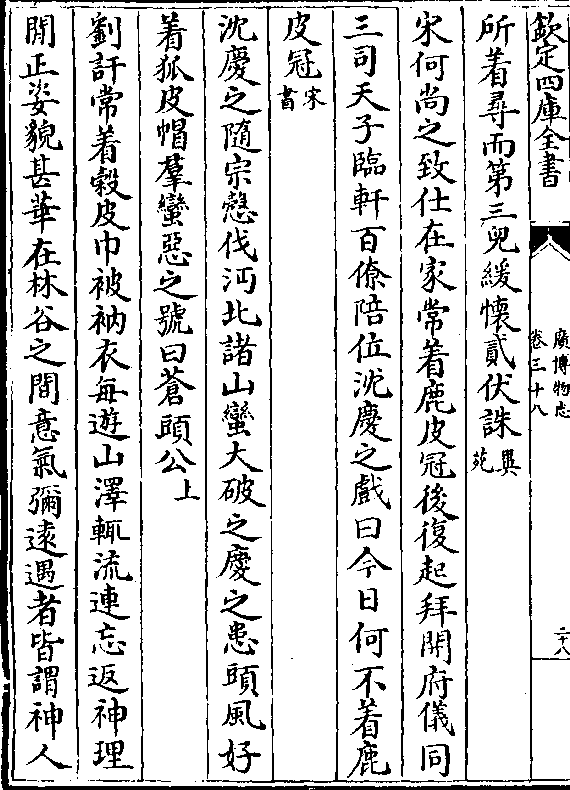 欽定四庫全書
廣博物志
卷三十八
二十八
所着尋而第三兒緩懷貳伏誅異苑
宋何尚之致仕在家常着鹿皮冠後復起拜開府儀同
三司天子臨軒百僚陪位沈慶之戲曰今日何不着鹿
皮冠宋書
沈慶之隨宗慤伐沔北諸山蠻大破之慶之患頭風好
着狐皮帽羣蠻惡之號曰蒼頭公上
劉訏常着縠皮巾被衲衣每遊山澤輒流連忘返神理
閒正姿貌甚華在林谷之間意氣彌遠遇者皆謂神人